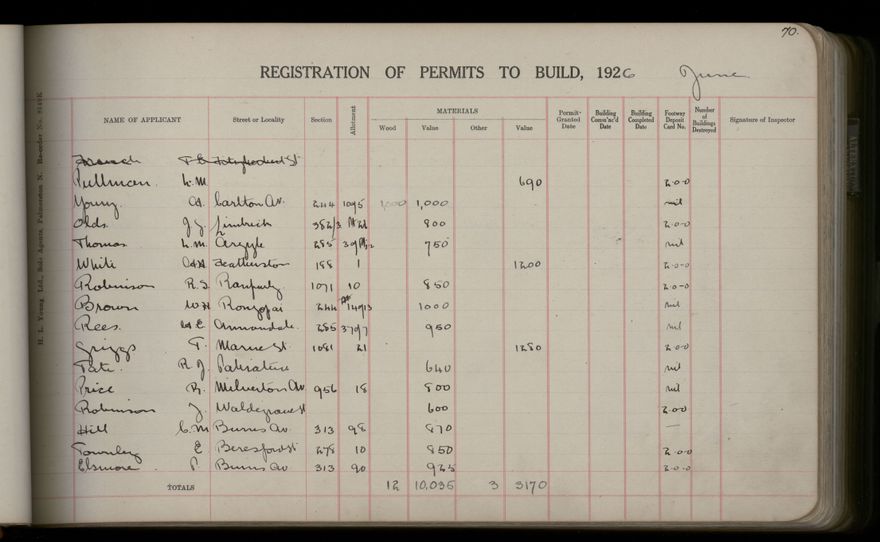 70.
REGISTRATION OF PERMITS TO BUILD, 1926 June
NAME OF APPLICANT Street or Locality Section Allotment MATERIALS Wood Value Other Value Permit-Granted Date Building Comm'nc'd Date Building Completed Date Footway Deposit Card No. Number of Buildings Destroyed Signature of Inspector
Pullman. L.M. 690 2-0-0
Young. A. Carlton Av. 244 1,000 nil
Olds. J.J. Limbrick 382/3 800 2-0-0
Thomas L.M. Argyle 285 750 nil
White Featherston 188 1 1200 2-0-0
Robinson R.S. Ranfurly. 1071 10 850 2-0-0
Brown W.H. Rongopai 244 1000 nil
Rees. Annandale. 285 950 nil
Griggs T. Marne St. 1081 21 1280 2-0-0
Tate. R.J. 640 nil
Price R. Milverton Av. 956 18 800 nil
Robinson J. Waldegrave St 600 2-0-0
Hill C.M Burns Av. 313 98 870 —
Townley E Beresford St 278 10 850 2-0-0
Elsmore. P. Burns Av 313 90 925 2-0-0
TOTALS 12 10,035 3 3170
H. L. Young, Ltd., Sole Agents, Palmerston N. Re-order No. 8149K